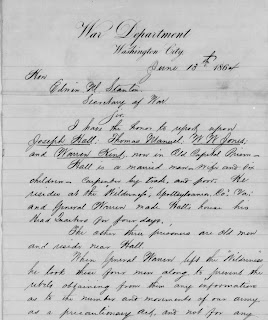 War Department
Washington City,
June 13th 1864
Hon
Edwin M. Stanton
Secretary of War
Sir
I have the honor to report upon
Joseph Hall, Thomas Mansel, W. W. Jones,
and Warren Kent, now in Old Capitol Prison—
Hall is a married man—wife and six
children—carpenter by trade, and poor. He
resides at the Wilderness, Spottsylvania Co. Va.
and General Warren made Hall's house his
Head Quarters for four days.
The other three prisoners are old men
and reside near Hall.
When General Warren left the Wilderness
he took these four men along to prevent the
rebels obtaining from them any information
as to the number and movements of our army
as a precautionary act, and not for any